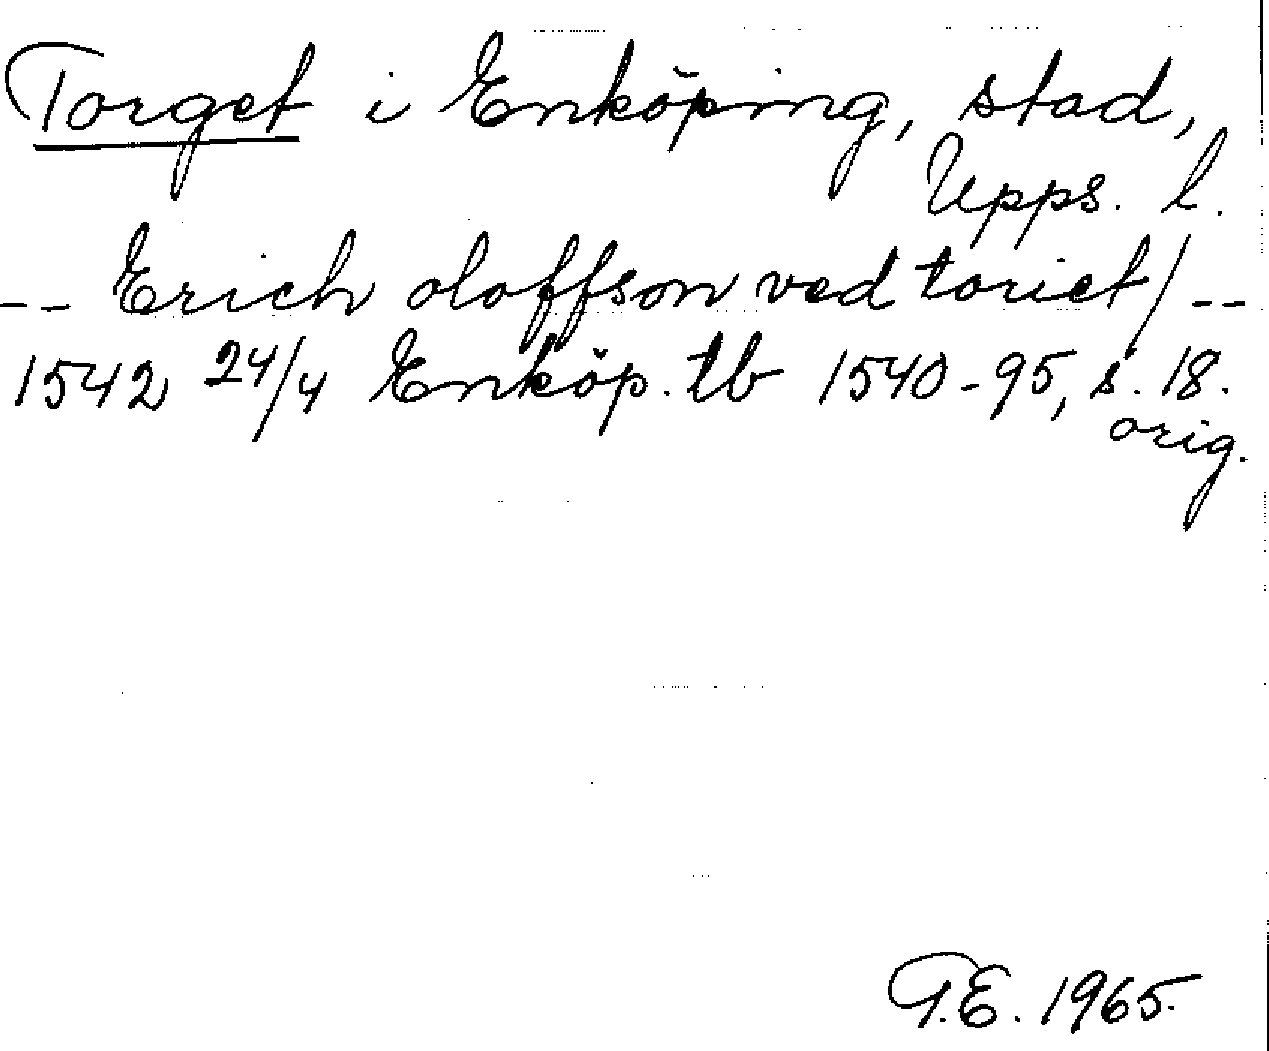 Torget i Enköping, stad,
Upps. l.
-- Erich oloffson ved toriet/--
1542 24/4 Enköp. tb 1540-95, s. 18.
orig.
T.E. 1965.